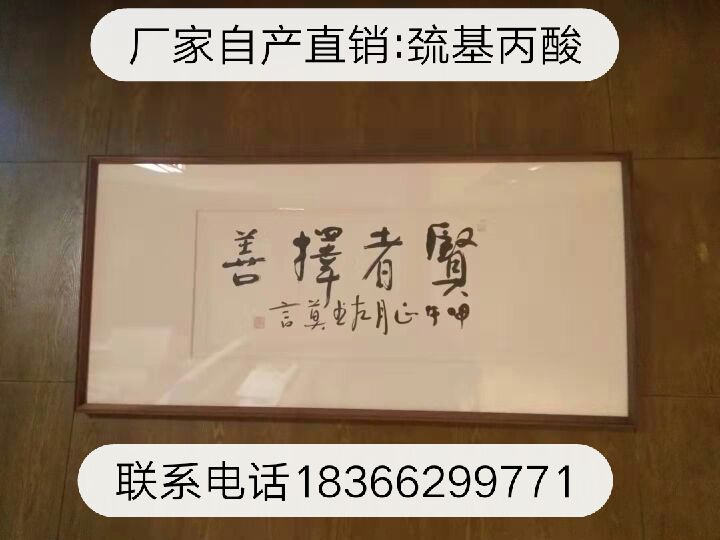 厂家自产直销:巯基丙酸
賢者擇善
正月左史莫言
联系电话18366299771